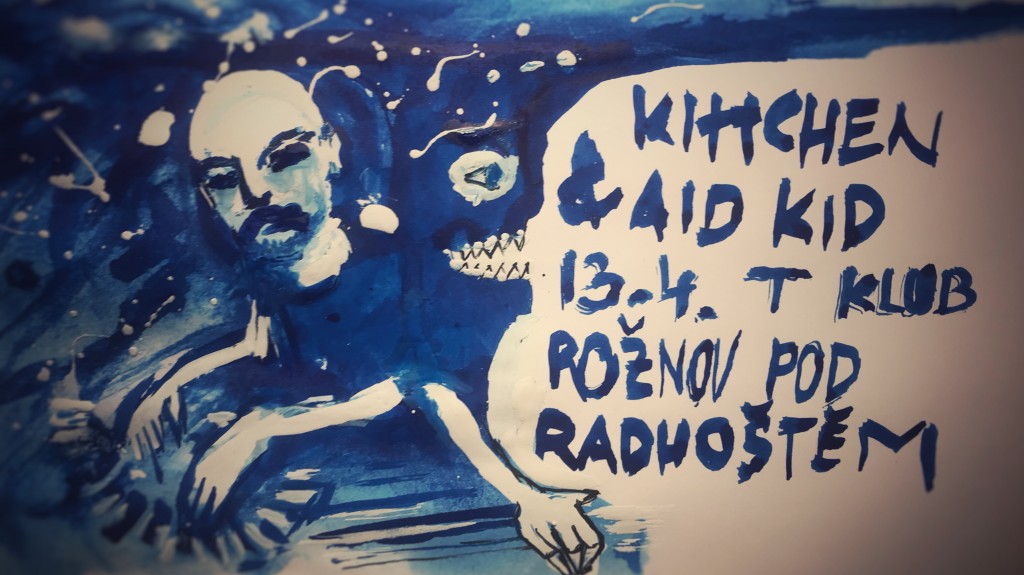 KIHCHEN
& AID KID
13.4. T KLUB
ROŽNOV POD
RADHOŠTĚM